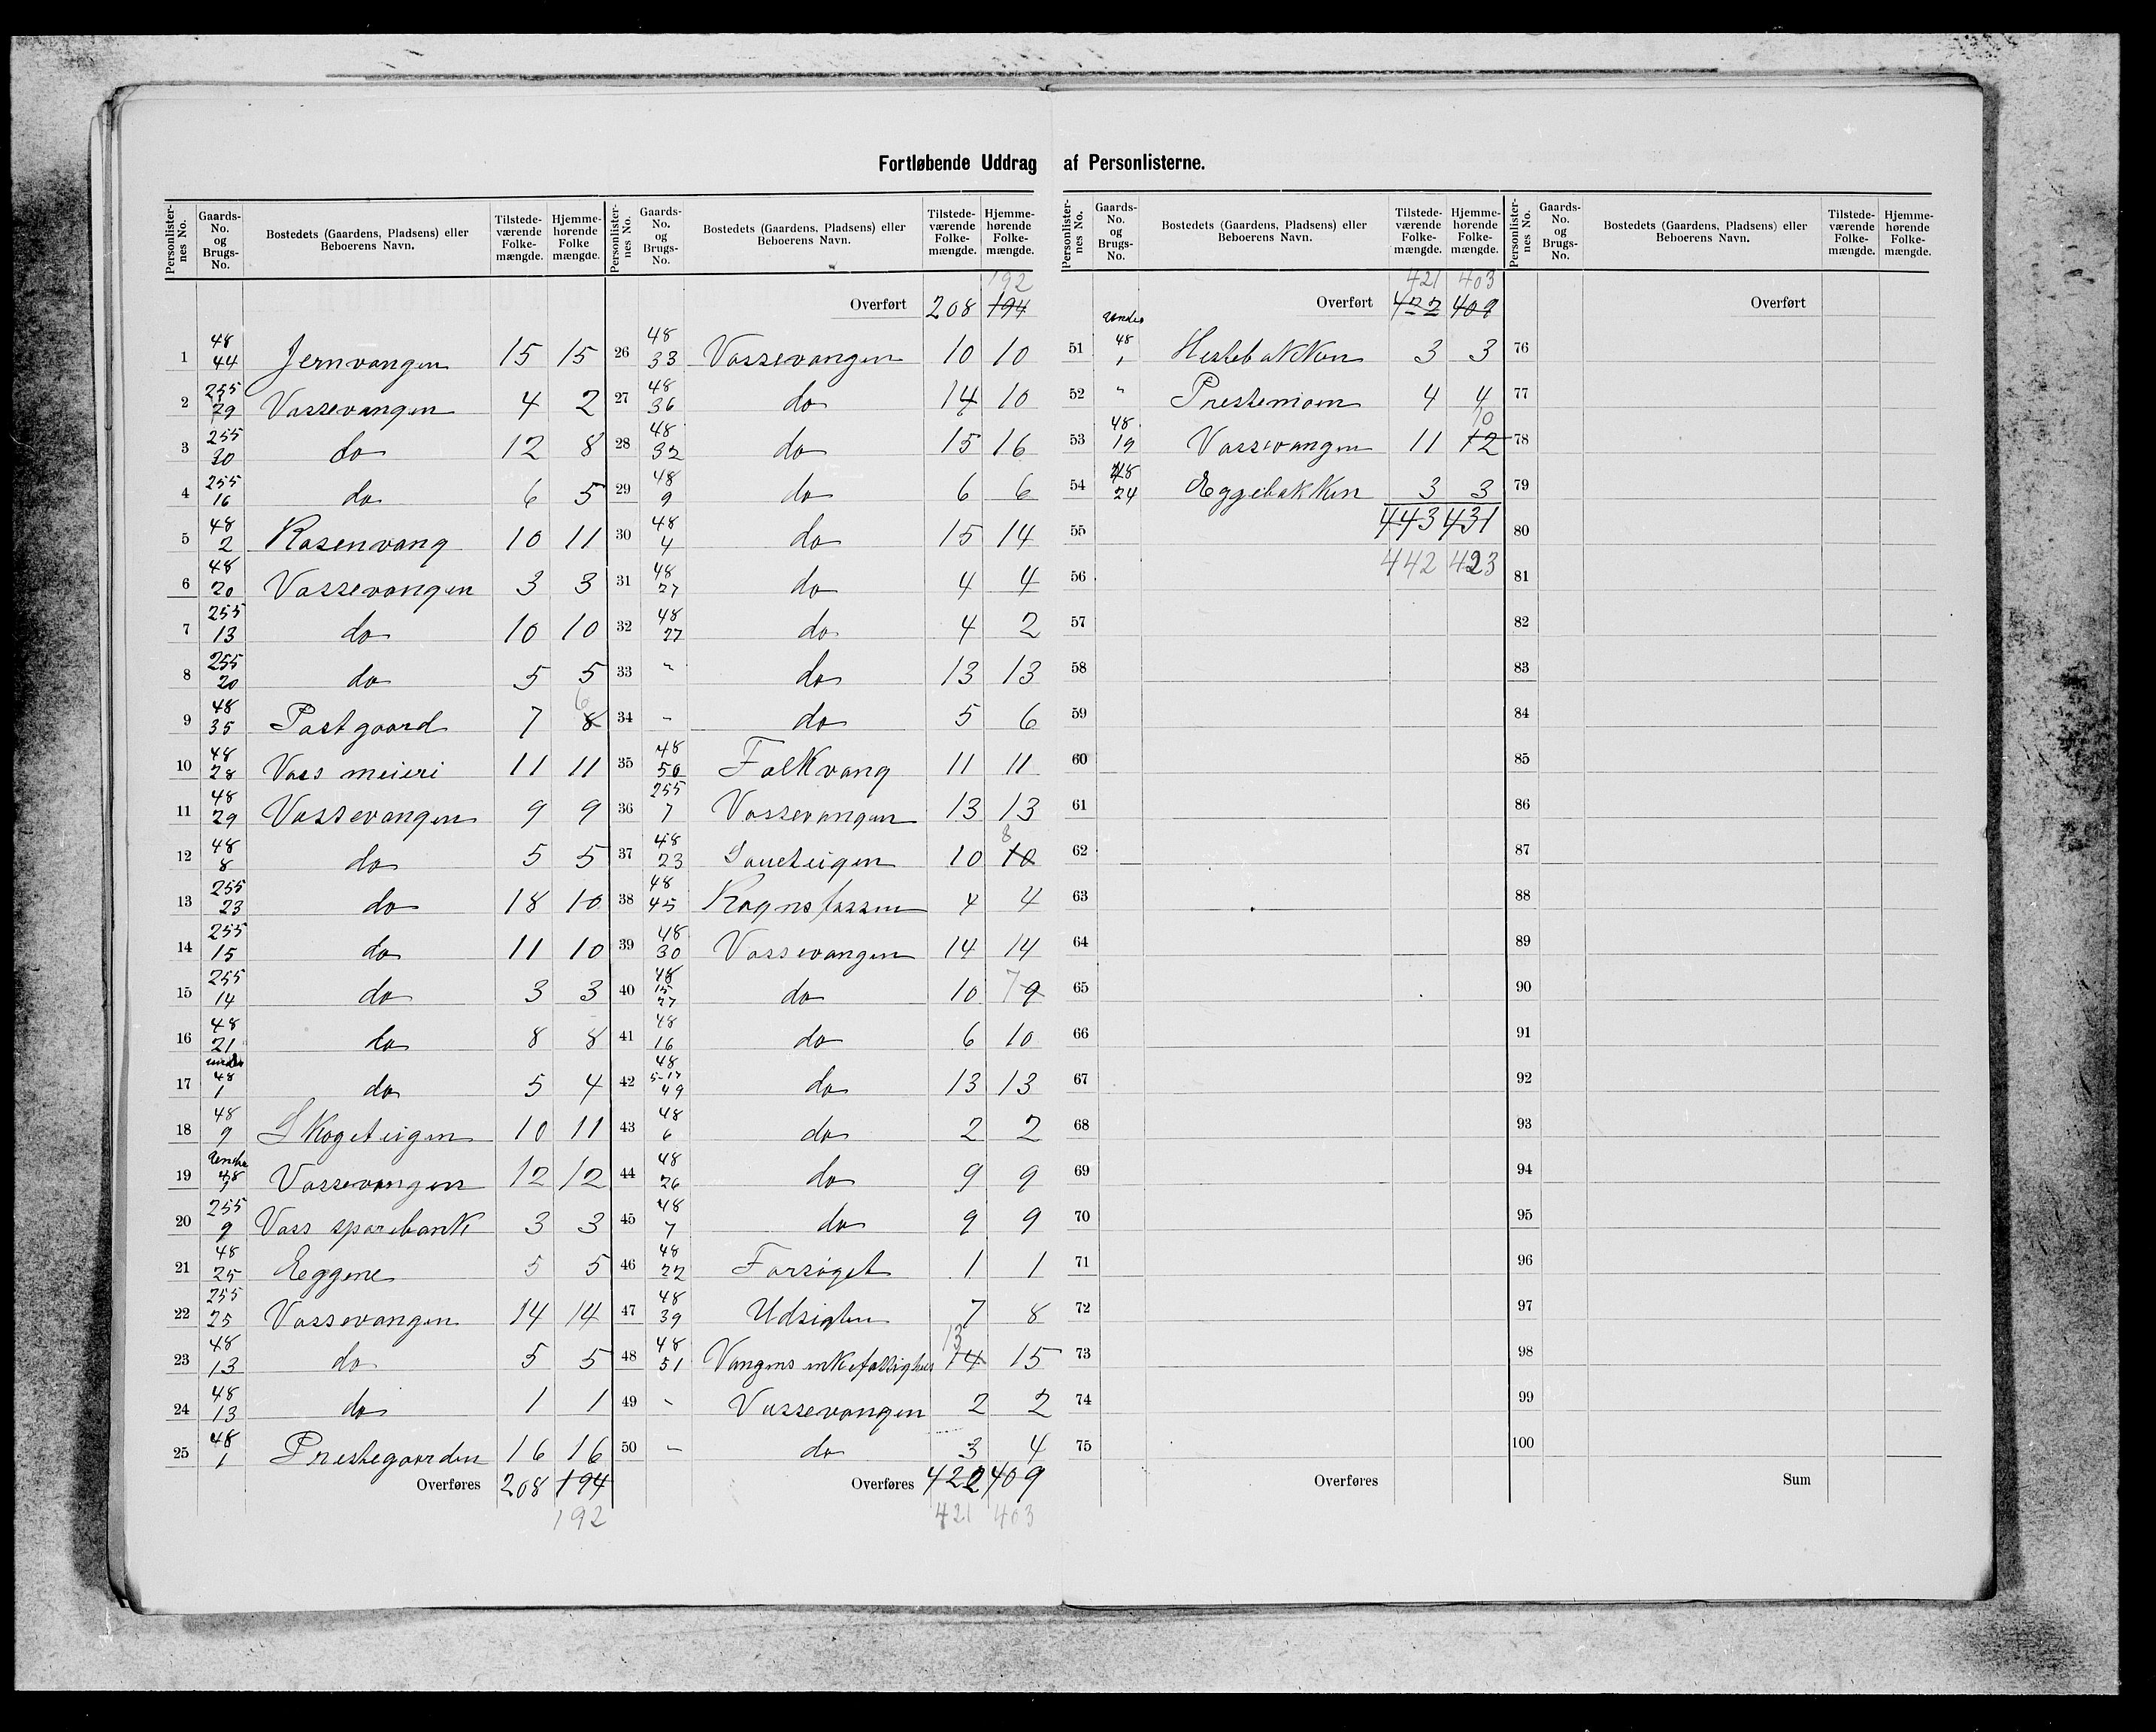 Fortløbende Uddrag af Personlisterne.
Personlister-nes No. | Gaards-No. og Brugs-No. | Bostedets (Gaardens, Pladsens) eller Beboerens Navn. | Tilstede-værende Folke-mængde. | Hjemme-hørende Folke mængde.
1 48 44 Jernvangen 15 15
2 255 29 Vossevangen 4 2
3 255 30 do 12 8
4 255 16 do 6 5
5 48 2 Rosenvang 10 11
6 48 20 Vossevangen 3 3
7 255 13 do 10 10
8 255 20 do 5 5
9 48 35 Postgaard 7 8 6
10 48 28 Voss meieri 11 11
11 48 29 Vossevangen 9 9
12 48 8 do 5 5
13 255 23 do 18 10
14 255 15 do 11 10
15 255 14 do 3 3
16 48 21 do 8 8
17 under 48 1 do 5 4
18 48 9 Skogeteigen 10 11
19 Under 48 1 Vossevangen 12 12
20 255 9 Voss sparebank 3 3
21 48 25 Eggene 5 5
22 255 25 Vossevangen 14 14
23 48 13 do 5 5
24 48 13 do 1 1
25 48 1 Prestegaarden 16 16
Overføres 208 194
192
Personlister-nes No. | Gaards-No. og Brugs-No. | Bostedets (Gaardens, Pladsens) eller Beboerens Navn. | Tilstede-værende Folke-mængde. | Hjemme-hørende Folke-mængde.
192
Overført 208 194
26 48 33 Vossevangen 10 10
27 48 36 do 14 10
28 48 32 do 15 16
29 48 9 do 6 6
30 48 4 do 15 14
31 48 27 do 4 4
32 48 27 do 4 2
33 " do 13 13
34 " do 5 6
35 48 50 Folkvang 11 11
36 255 7 Vossevangen 13 13
37 48 23 Saueteigen 10 10 8
38 48 45 Rognsfossen 4 4
39 48 30 Vossevangen 14 14
40 48 15 27 do 10 7 9
41 48 16 do 6 10
42 48 5-17 49 do 13 13
43 48 6 do 2 2
44 48 26 do 9 9
45 48 7 do 9 9
46 48 22 Forsøget 1 1
47 48 39 Udsigten 7 8
48 48 51 Vangens enkefattighus 14 13 15
49 " Vossevangen 2 2
50 " do 3 4
Overføres 422 409
421 403
Personlister-nes No. | Gaards-No. og Brugs-No. | Bostedets (Gaardens, Pladsens) eller Beboerens Navn. | Tilstede-værende Folke-mængde. | Hjemme-hørende Folke-mængde.
421 403
Overført 422 409
51 Under 48 1 Hestebakken 3 3
52 " Prestemoen 4 4
53 48 19 Vossevangen 11 12 10
54 48 24 Eggebakken 3 3
55 443 431
56 442 423
57
58
59
60
61
62
63
64
65
66
67
68
69
70
71
72
73
74
75
Overføres
Personlister-nes No. | Gaards-No. og Brugs-No. | Bostedets (Gaardens, Pladsens) eller Beboerens Navn. | Tilstede-værende Folke-mængde. | Hjemme-hørende Folke-mængde.
Overført
76
77
78
79
80
81
82
83
84
85
86
87
88
89
90
91
92
93
94
95
96
97
98
99
100
Sum